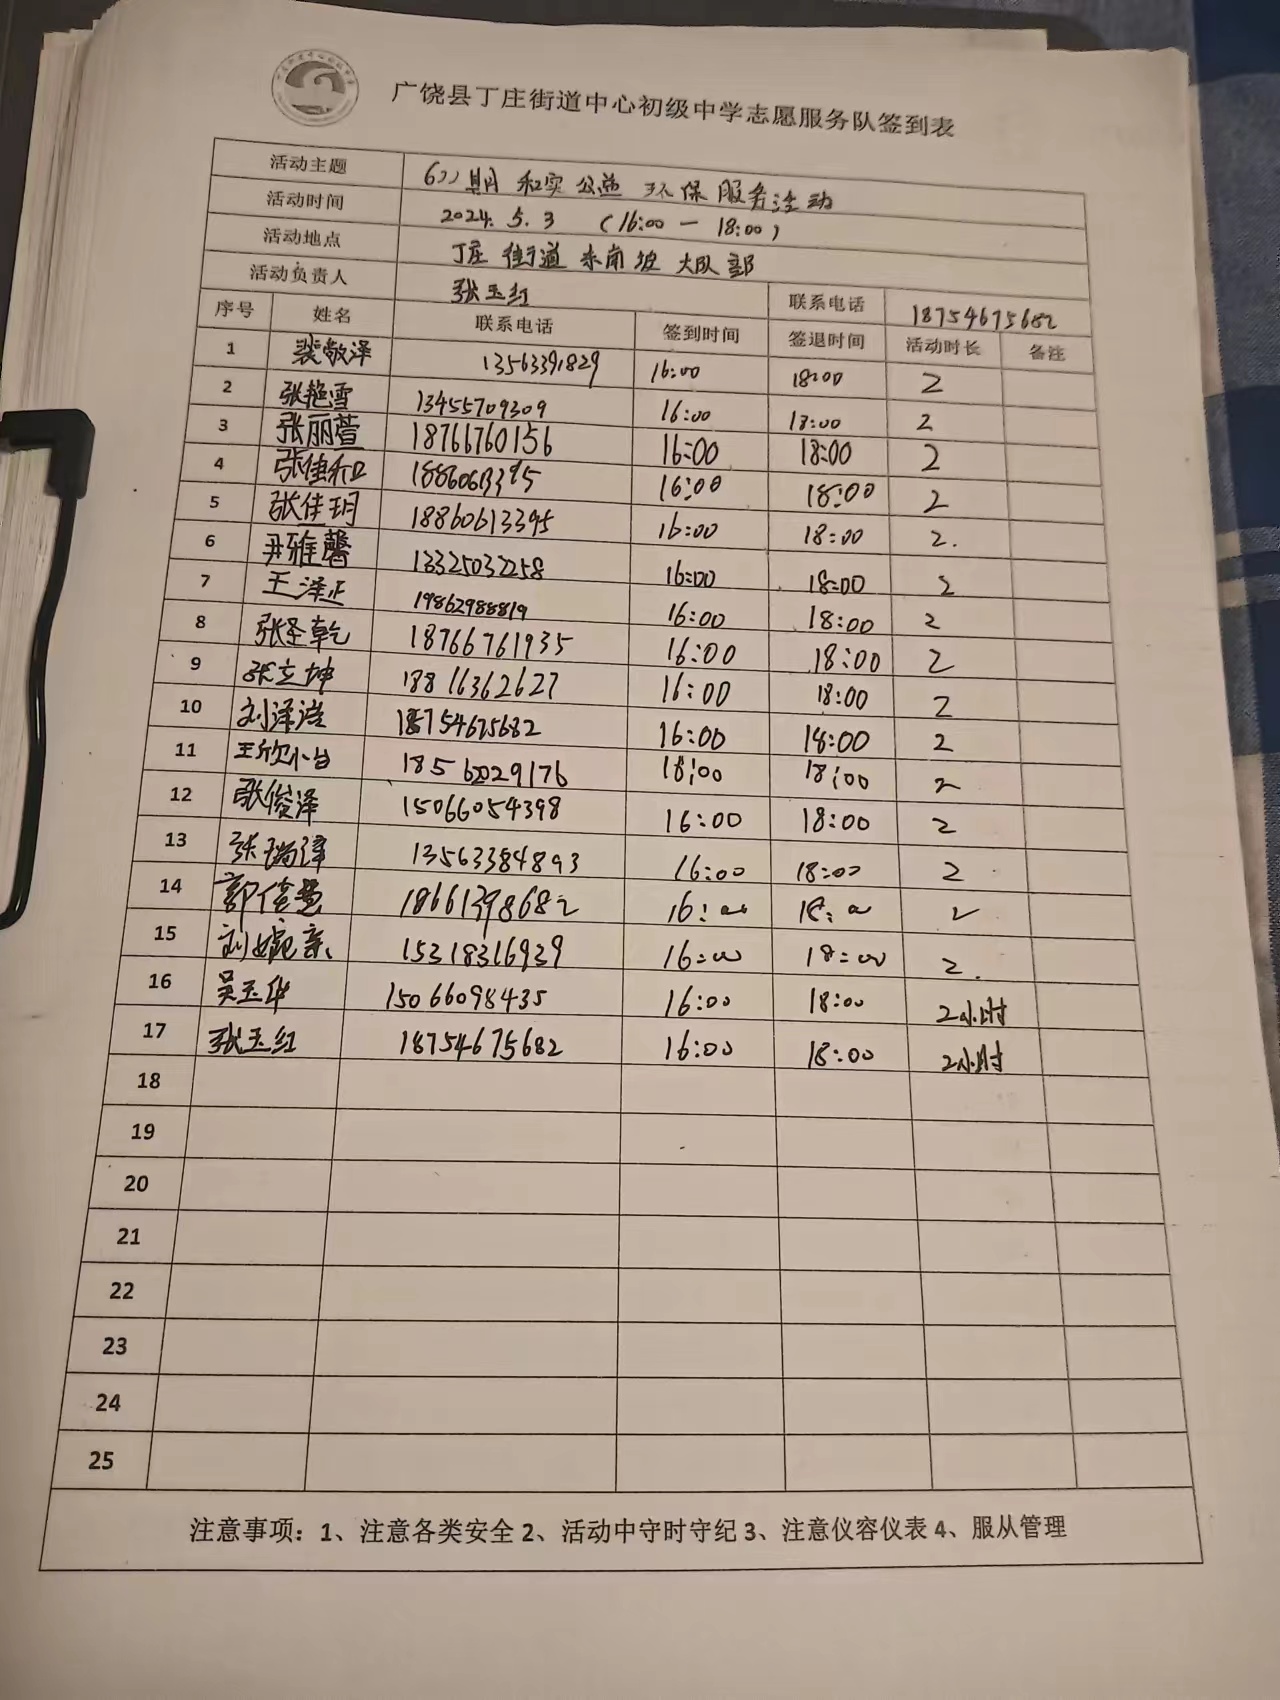 广饶县丁庄街道中心初级中学志愿服务队签到表
活动主题 622期 和实公益 环保服务活动
活动时间 2024.5.3 (16:00 — 18:00)
活动地点 丁庄街道 东南坡 大队部
活动负责人 张玉红 联系电话 18754675682
序号 姓名 联系电话 签到时间 签退时间 活动时长 备注
1 裴敬泽 13563391829 16:00 18:00 2
2 张艳雪 13455709309 16:00 18:00 2
3 张丽萱 18766760156 16:00 18:00 2
4 张佳和 18860613395 16:00 18:00 2
5 张佳玥 18860613395 16:00 18:00 2.
6 尹雅馨 13325032258 16:00 18:00 2
7 王泽正 19862988819 16:00 18:00 2
8 张圣乾 18766761935 16:00 18:00 2
9 张立坤 18816362627 16:00 18:00 2
10 刘泽浩 18754675682 16:00 18:00 2
11 王欣 18562029176 18:00 18:00 2
12 张俊泽 15066054398 16:00 18:00 2
13 张瑞泽 13563384893 16:00 18:00 2
14 郭倍 18661398682 16:00 18:00 2
15 刘婉亲 15318316939 16:00 18:00 2.
16 吴玉华 15066098435 16:00 18:00 2小时
17 张玉红 18754675682 16:00 18:00 2小时
18
19
20
21
22
23
24
25
注意事项：1、注意各类安全 2、活动中守时守纪 3、注意仪容仪表 4、服从管理